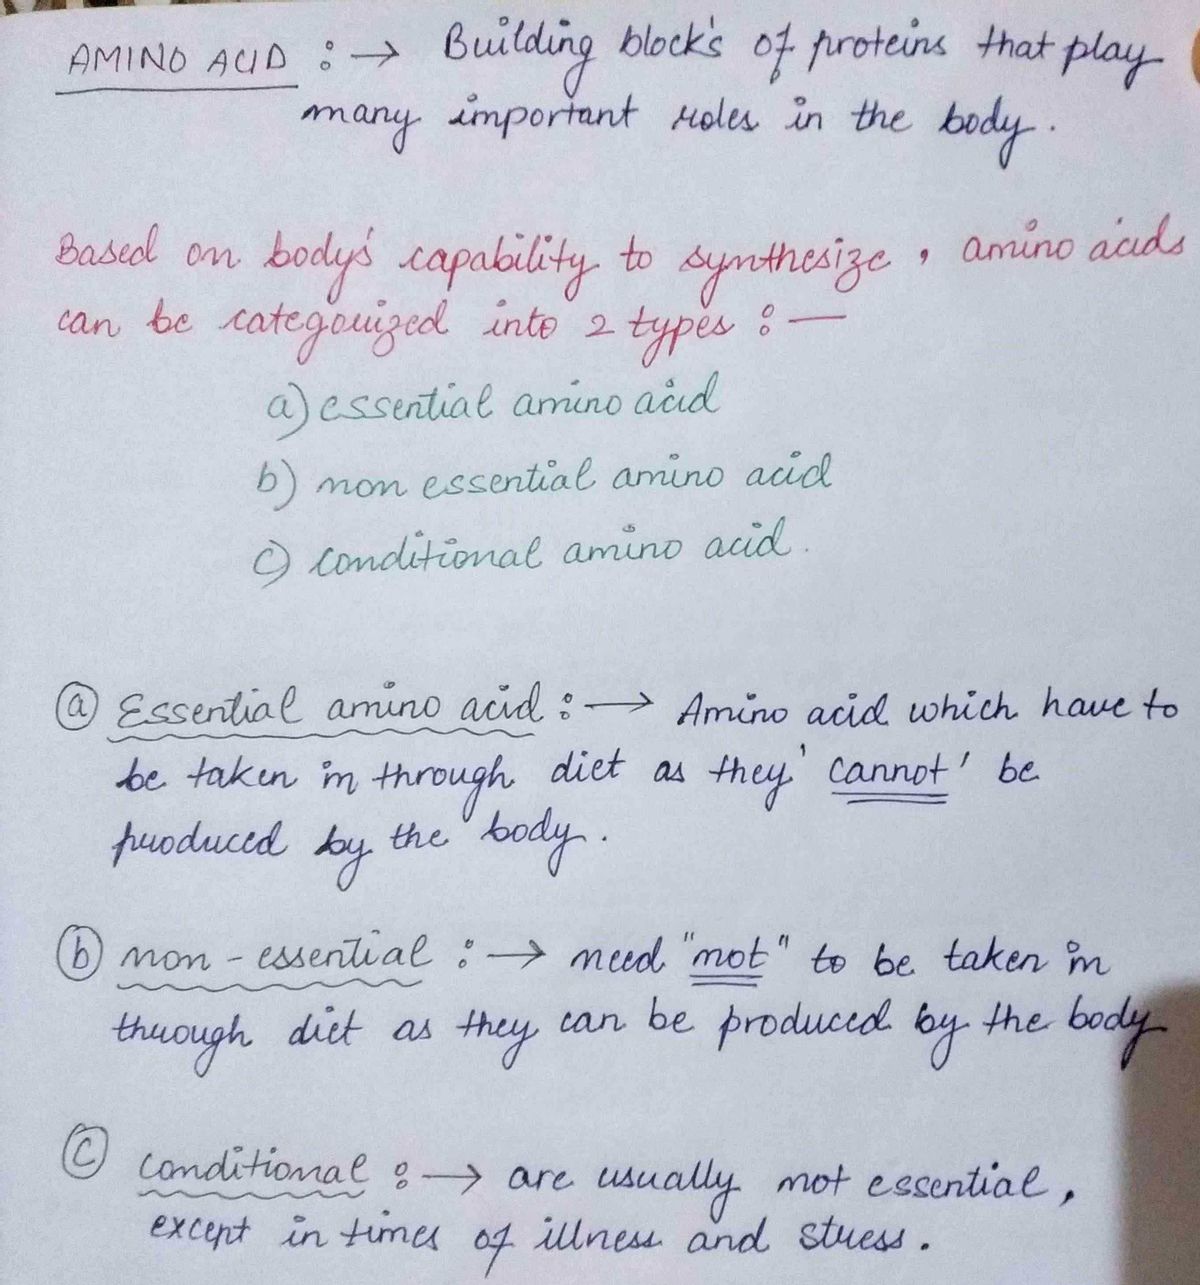 AMINO ACID :→ Building block's of proteins that play
many important roles in the body.
Based on body's capability to synthesize, amino acids
can be categorized into 2 types :—
a) essential amino acid
b) non essential amino acid
c) conditional amino acid.
ⓐ Essential amino acid :→ Amino acid which have to
be taken in through diet as they 'cannot' be
produced by the body.
ⓑ non-essential :→ need "not" to be taken in
through diet as they can be produced by the body
ⓒ conditional :→ are usually not essential,
except in times of illness and stress.